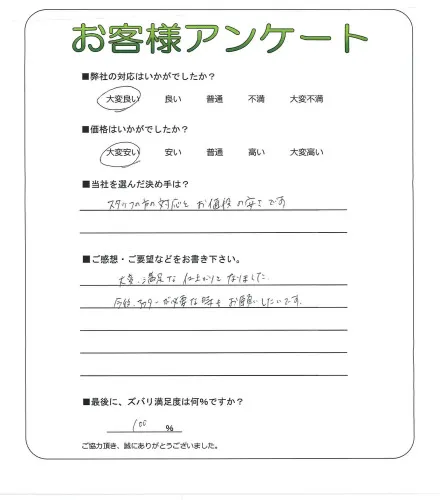 お客様アンケート
■弊社の対応はいかがでしたか？
大変良い 良い 普通 不満 大変不満
■価格はいかがでしたか？
大変安い 安い 普通 高い 大変高い
■当社を選んだ決め手は？
スタッフの方の対応と お価格の安さです
■ご感想・ご要望などをお書き下さい。
大変、満足な仕上がりとなりました。
今後、が必要な時も お願いしたいです。
■最後に、ズバリ満足度は何%ですか？
100 %
ご協力頂き、誠にありがとうございました。